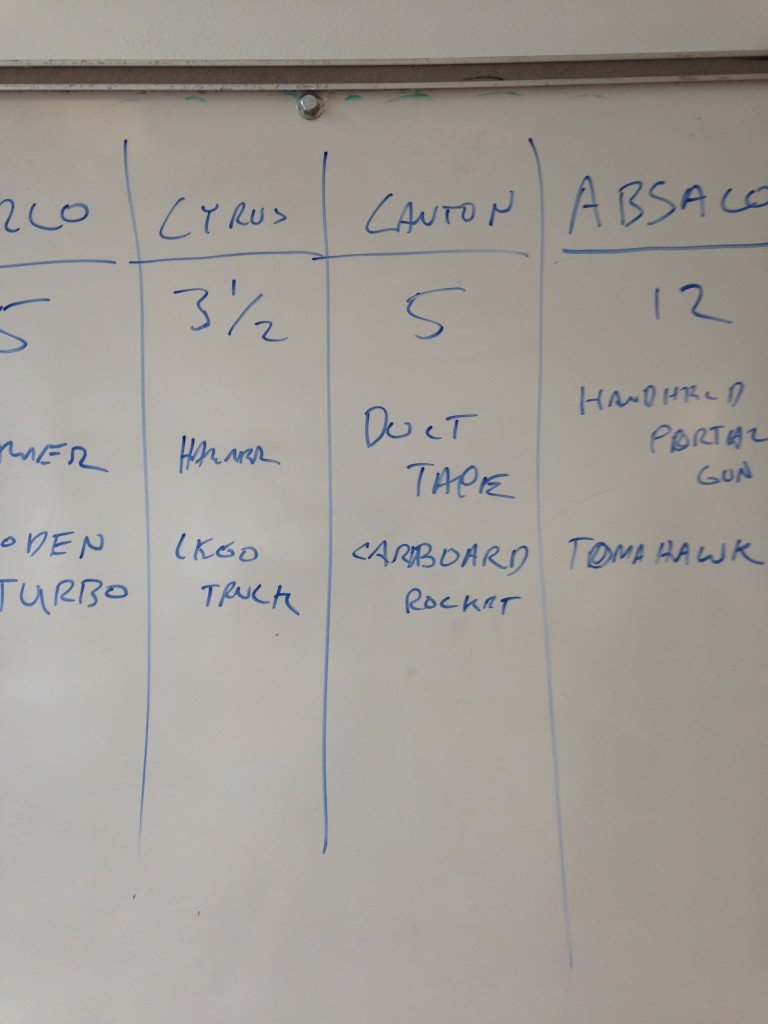 RCO CYRUS CANTON ABSALO
5 3 1/2 5 12
HAMMER DUCT HANDHELD
TAPE PORTAL
GUN
ODEN LEGO CARDBOARD TOMAHAWK
TURBO TRUCK ROCKET